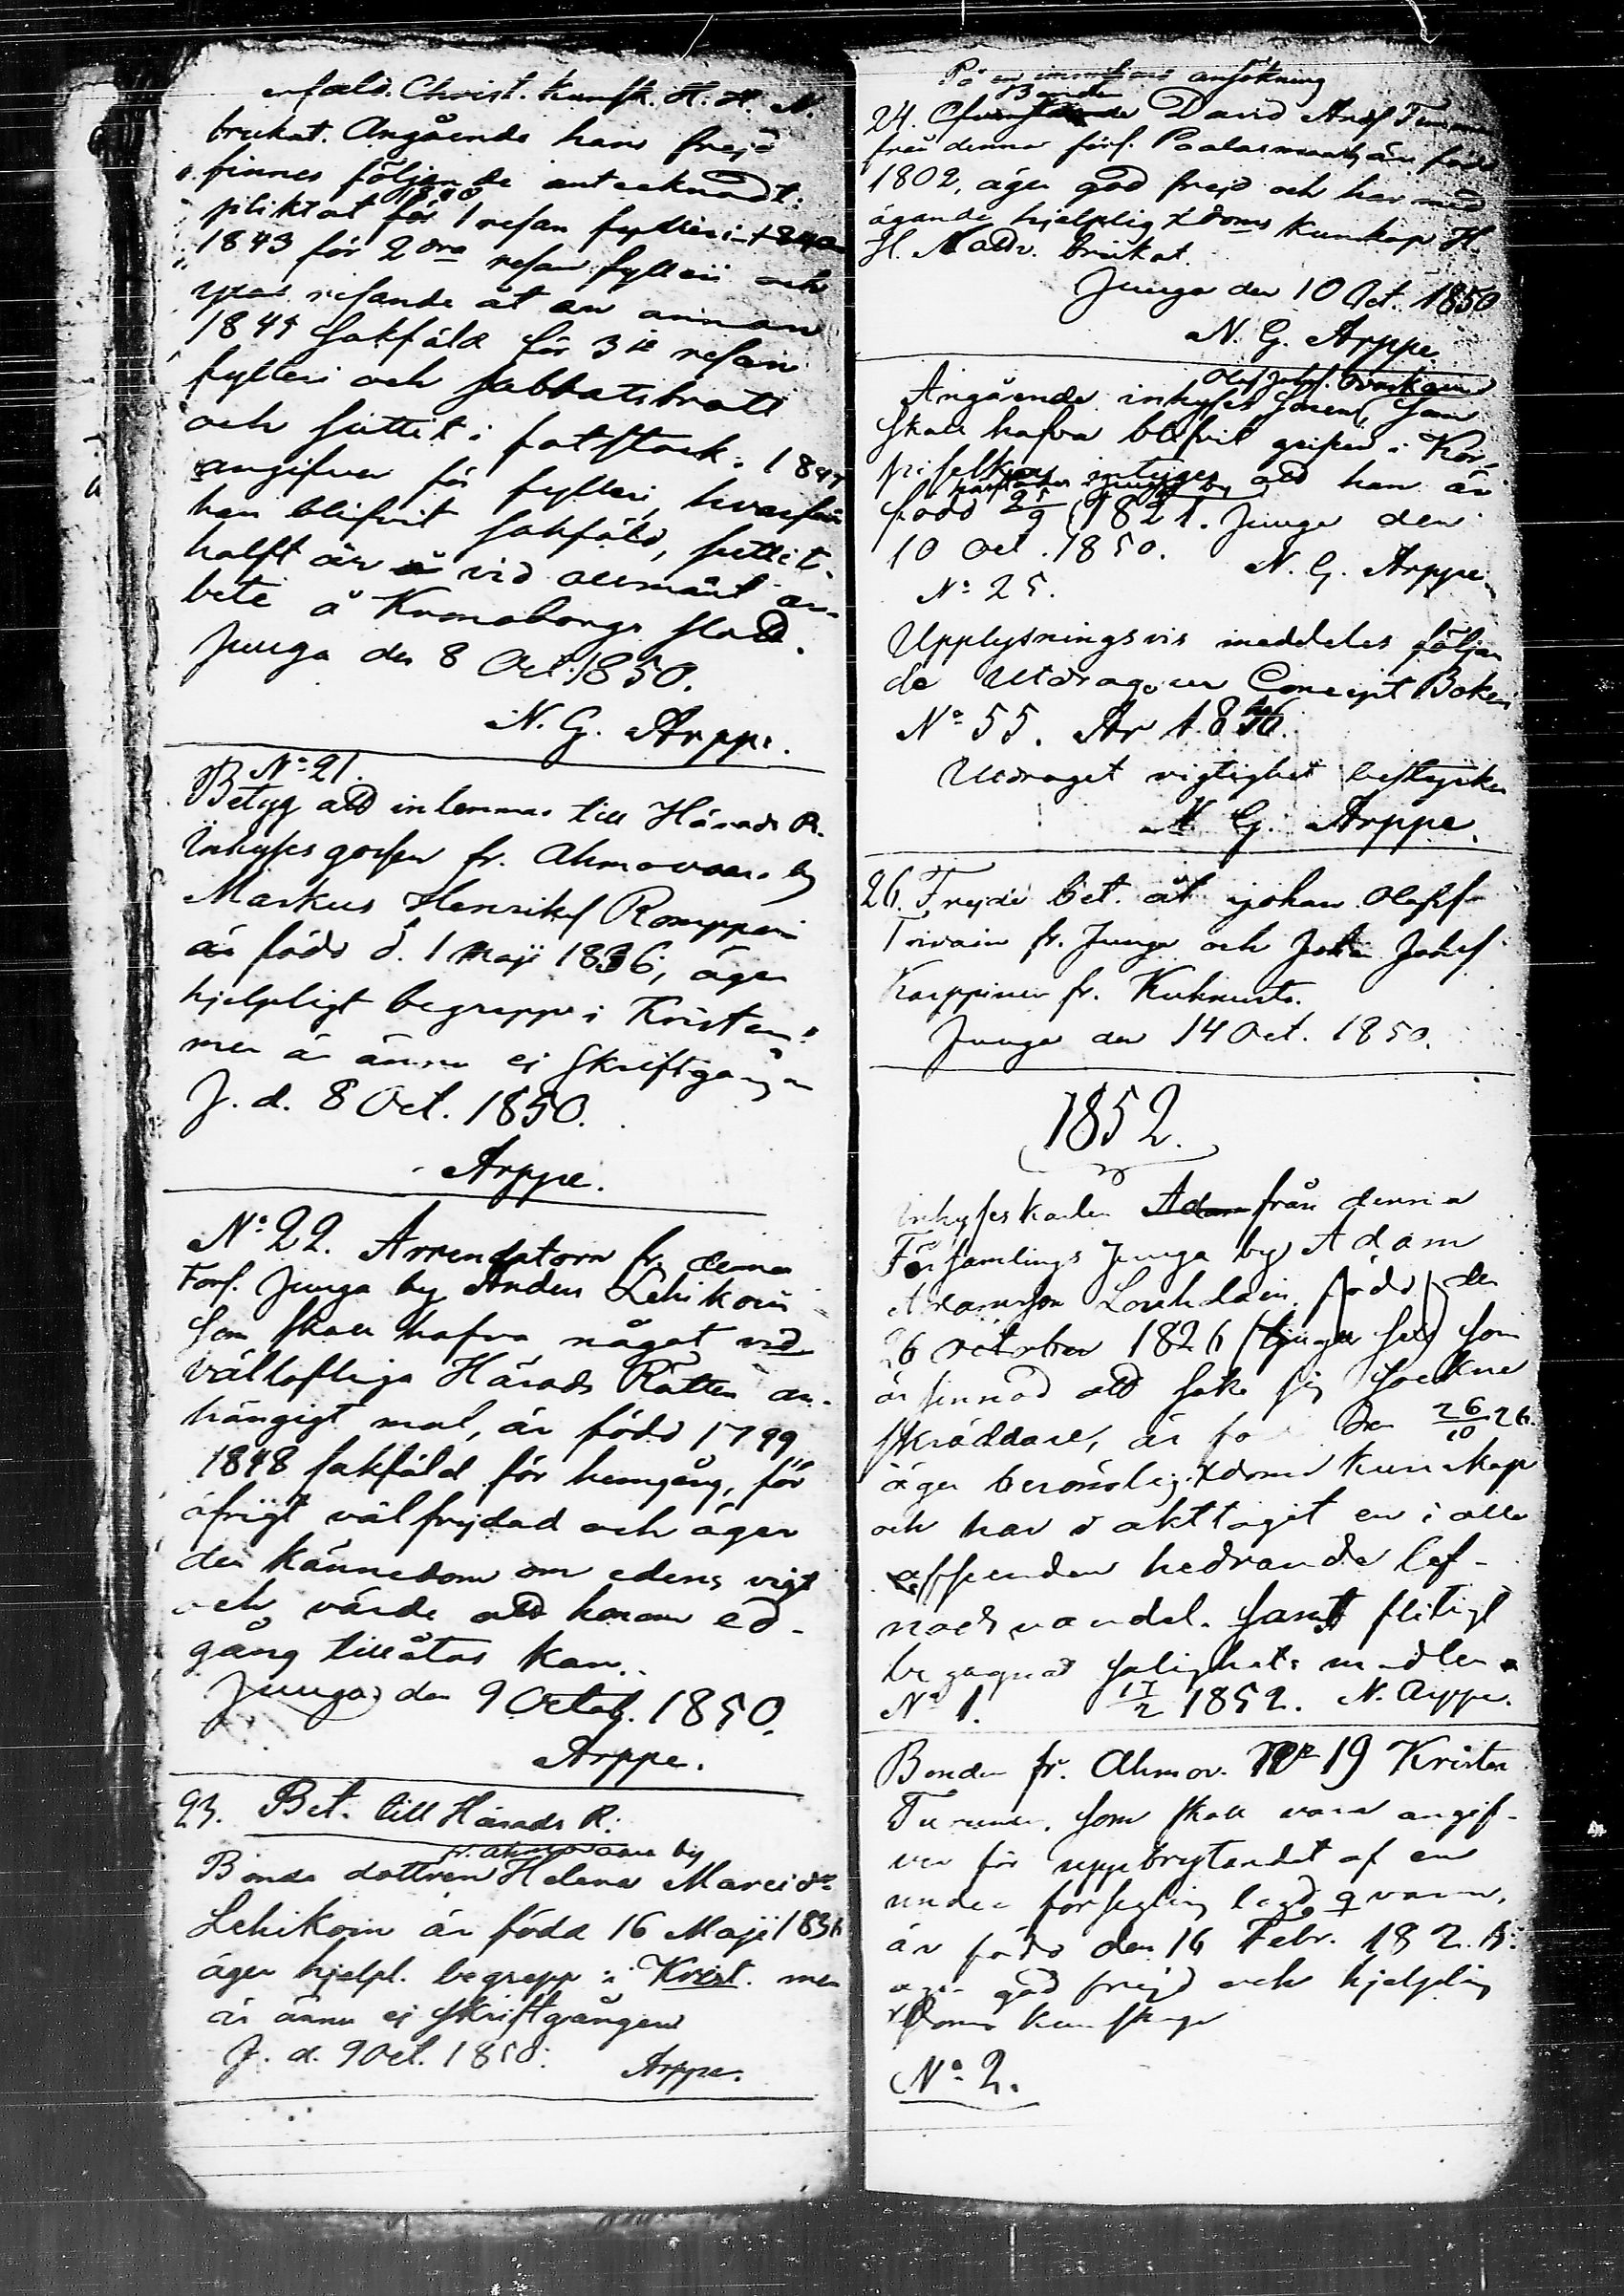 enfald. Christ. kunsk. H. H. N.
brukat. Angående hans frejd
finnes följande antecknadt:
1840
pliktat för 1 resan fylleri
1843 för 2dra resan fylleri och
resande åt en annan
184 sakfäld för 3je resan
fylleri och sabbatsbrott
och suttit i fotstock. 1847
angifven för fylleri, hvarför
han blifvit sakfäld, suttit
halft år vid allmänt ar-
bete å Kronoborgs slott.
Juuga den 8 Oct. 1850.
N. G. Arppe.
No 21.
Betyg att inlemnas till Härads R.
Inhyses gossen fr. Ahmovaara by
Markus Henriks Romppain
är född d. 1 Maji 1836, äger
hjelpligt begrepp i Kristend.
men är ännu ej skriftgången
J. d. 8 Oct. 1850.
Arppe.
No 22. Arrendatorn fr. denna
Förs. Juuga by Anders Lehikoin
som skall hafva något vid
vällofliga Härads Rätten an-
hängigt mål, är född 1799
1848 sakfäld för hemgång, för
öfrigt välfrejdad och äger
den kännedom om edens vigt
och värde att honom ed-
gång tillåtas kan.
Juuga den 9 Octob. 1850.
Arppe.
23. Bet. till Härads R:
fr. Ahmovaara by
Bonde dottren Helena Marcidr
Lehikoin är född 16 Maji 183
äger hjelpl. begrepp i Krist. men
är ännu ej skriftgången
J. d. 9 Oct. 1850. Arppe.
På en ansökning
Bonden
24. David Andss
från denna förs. Paalasmaa, är född
1802, äger god frejd och har med
ägande hjelplig Xdoms kunskap H.
H. Nattv. brukat.
Juuga den 10 Oct. 1850
N. G. Arppe.
Olof Johss.
Angående inhyses som
skall hafva blifvit gripen i
intygas att han är
född 25/9 1821. Juuga den
10 Oct. 1850. N. G. Arppe.
No 25.
Upplysningsvis meddelas följan
de Utdrag ur Concept Boken
No 55. År 1846.
Utdraget rigtighet bestyrker
N. G. Arppe.
26. Frejde bet. åt Johan Olofss
Toivain fr. Juuga och Johan Johss
Karppinen fr. Kuhnusta.
Juuga den 14 Oct. 1850.
1852.
Inhyses karlen Adam från denna
Församlings Juuga by Adam
Adamsson Louhelain född den
26 october 1826 (tjugu sex) som
är sinnad att söka sig sockne
skräddare, är fö den 26/10 26
äger berömlig Xdoms kunskap
och har iakttagit en i alla
afseenden hedrande lef-
nads vandel. samt flitigt
begagnat salighets medlen
No 1. 17/2 1852. N. Arppe.
Bonden fr. Ahmov. No 19 Krister
Turunen, som skall vara angif-
ven för uppbrytandet af en
under försegling lagd qvarn,
är född den 16 Febr. 182
äger god frejd och hjelplig
Xdoms kunskap
No 2.